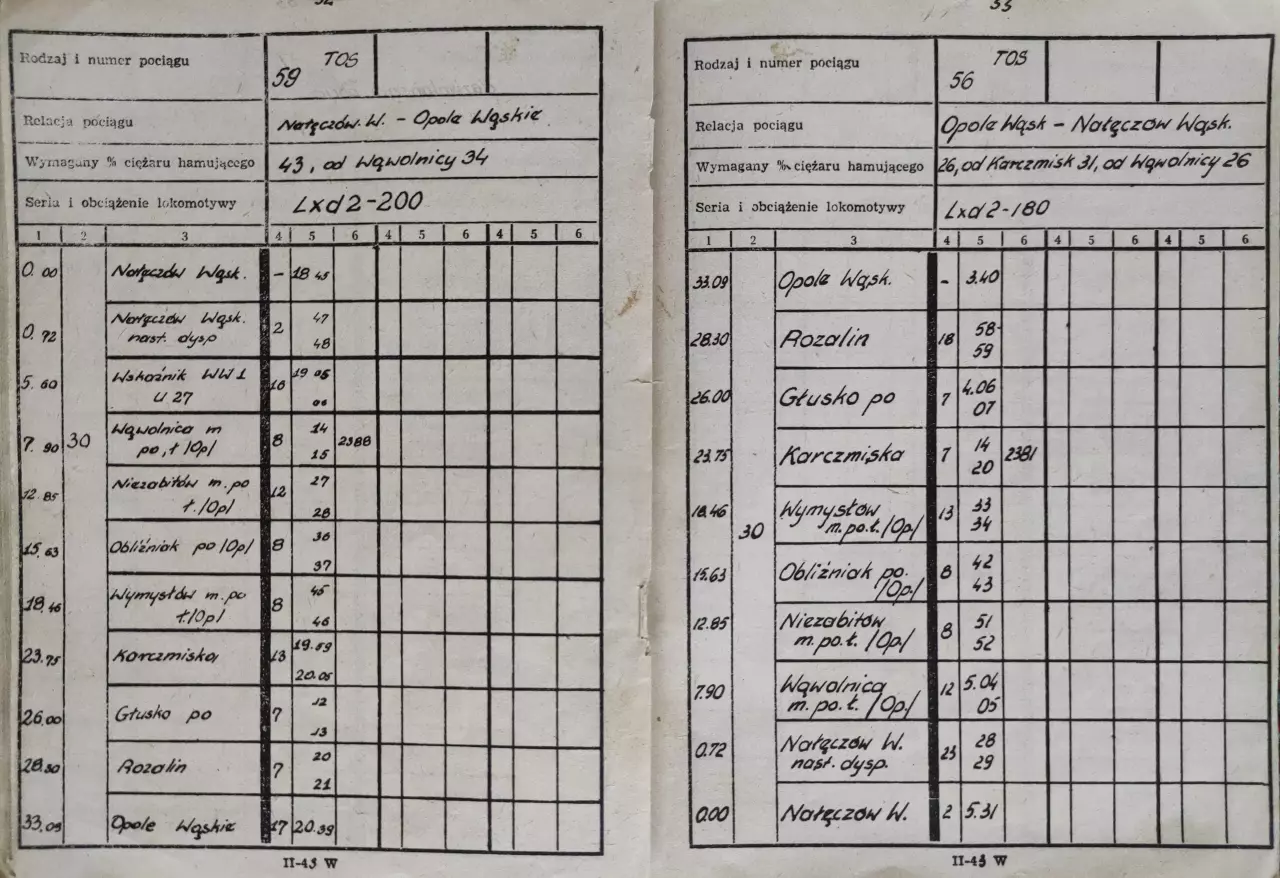 Rodzaj i numer pociągu
TOS
59
Relacja pociągu
Nałęczów. W. - Opole Wąskie
Wymagany % ciężaru hamującego
43, od Wąwolnicy 34
Seria i obciążenie lokomotywy
Lxd2-200
1 2 3 4 5 6 4 5 6 4 5 6
0.00 Nałęczów Wąsk. - 18 45
0.72 Nałęczów Wąsk. 2 47
nast. dysp 48
5.60 Wskaźnik WW1 16 19 05
U 27 06
7.90 30 Wąwolnica m 8 14 2388
po,ł /Op/ 15
12.85 Niezabitów m.po 12 27
ł./Op/ 28
15.63 Obliźniak po /Op/ 8 36
37
18.46 Wymysłów m.po 8 45
ł/Op/ 46
23.75 Karczmiska 13 19.59
20.05
26.00 Głusko po 7 12
13
28.30 Rozalin 7 20
21
33.09 Opole Wąskie 17 20.39
II-43 W
33
Rodzaj i numer pociągu
TOS
56
Relacja pociągu
Opole Wąsk - Nałęczów Wąsk.
Wymagany % ciężaru hamującego
26, od Karczmisk 31, od Wąwolnicy 26
Seria i obciążenie lokomotywy
Lxd2-180
1 2 3 4 5 6 4 5 6 4 5 6
33.09 Opole Wąsk. - 3.40
28.30 Rozalin 18 58
59
26.00 Głusko po 7 4.06
07
23.75 Karczmiska 7 14 2381
20
18.46 30 Wymysłów 13 33
m.po.ł./Op/ 34
15.63 Obliźniak po. 8 42
/Op/ 43
12.85 Niezabitów 8 51
m.po.ł. /Op/ 52
7.90 Wąwolnica 12 5.04
m.po.ł. /Op/ 05
0.72 Nałęczów W. 23 28
nast. dysp. 29
0.00 Nałęczów W. 2 5.31
II-43 W